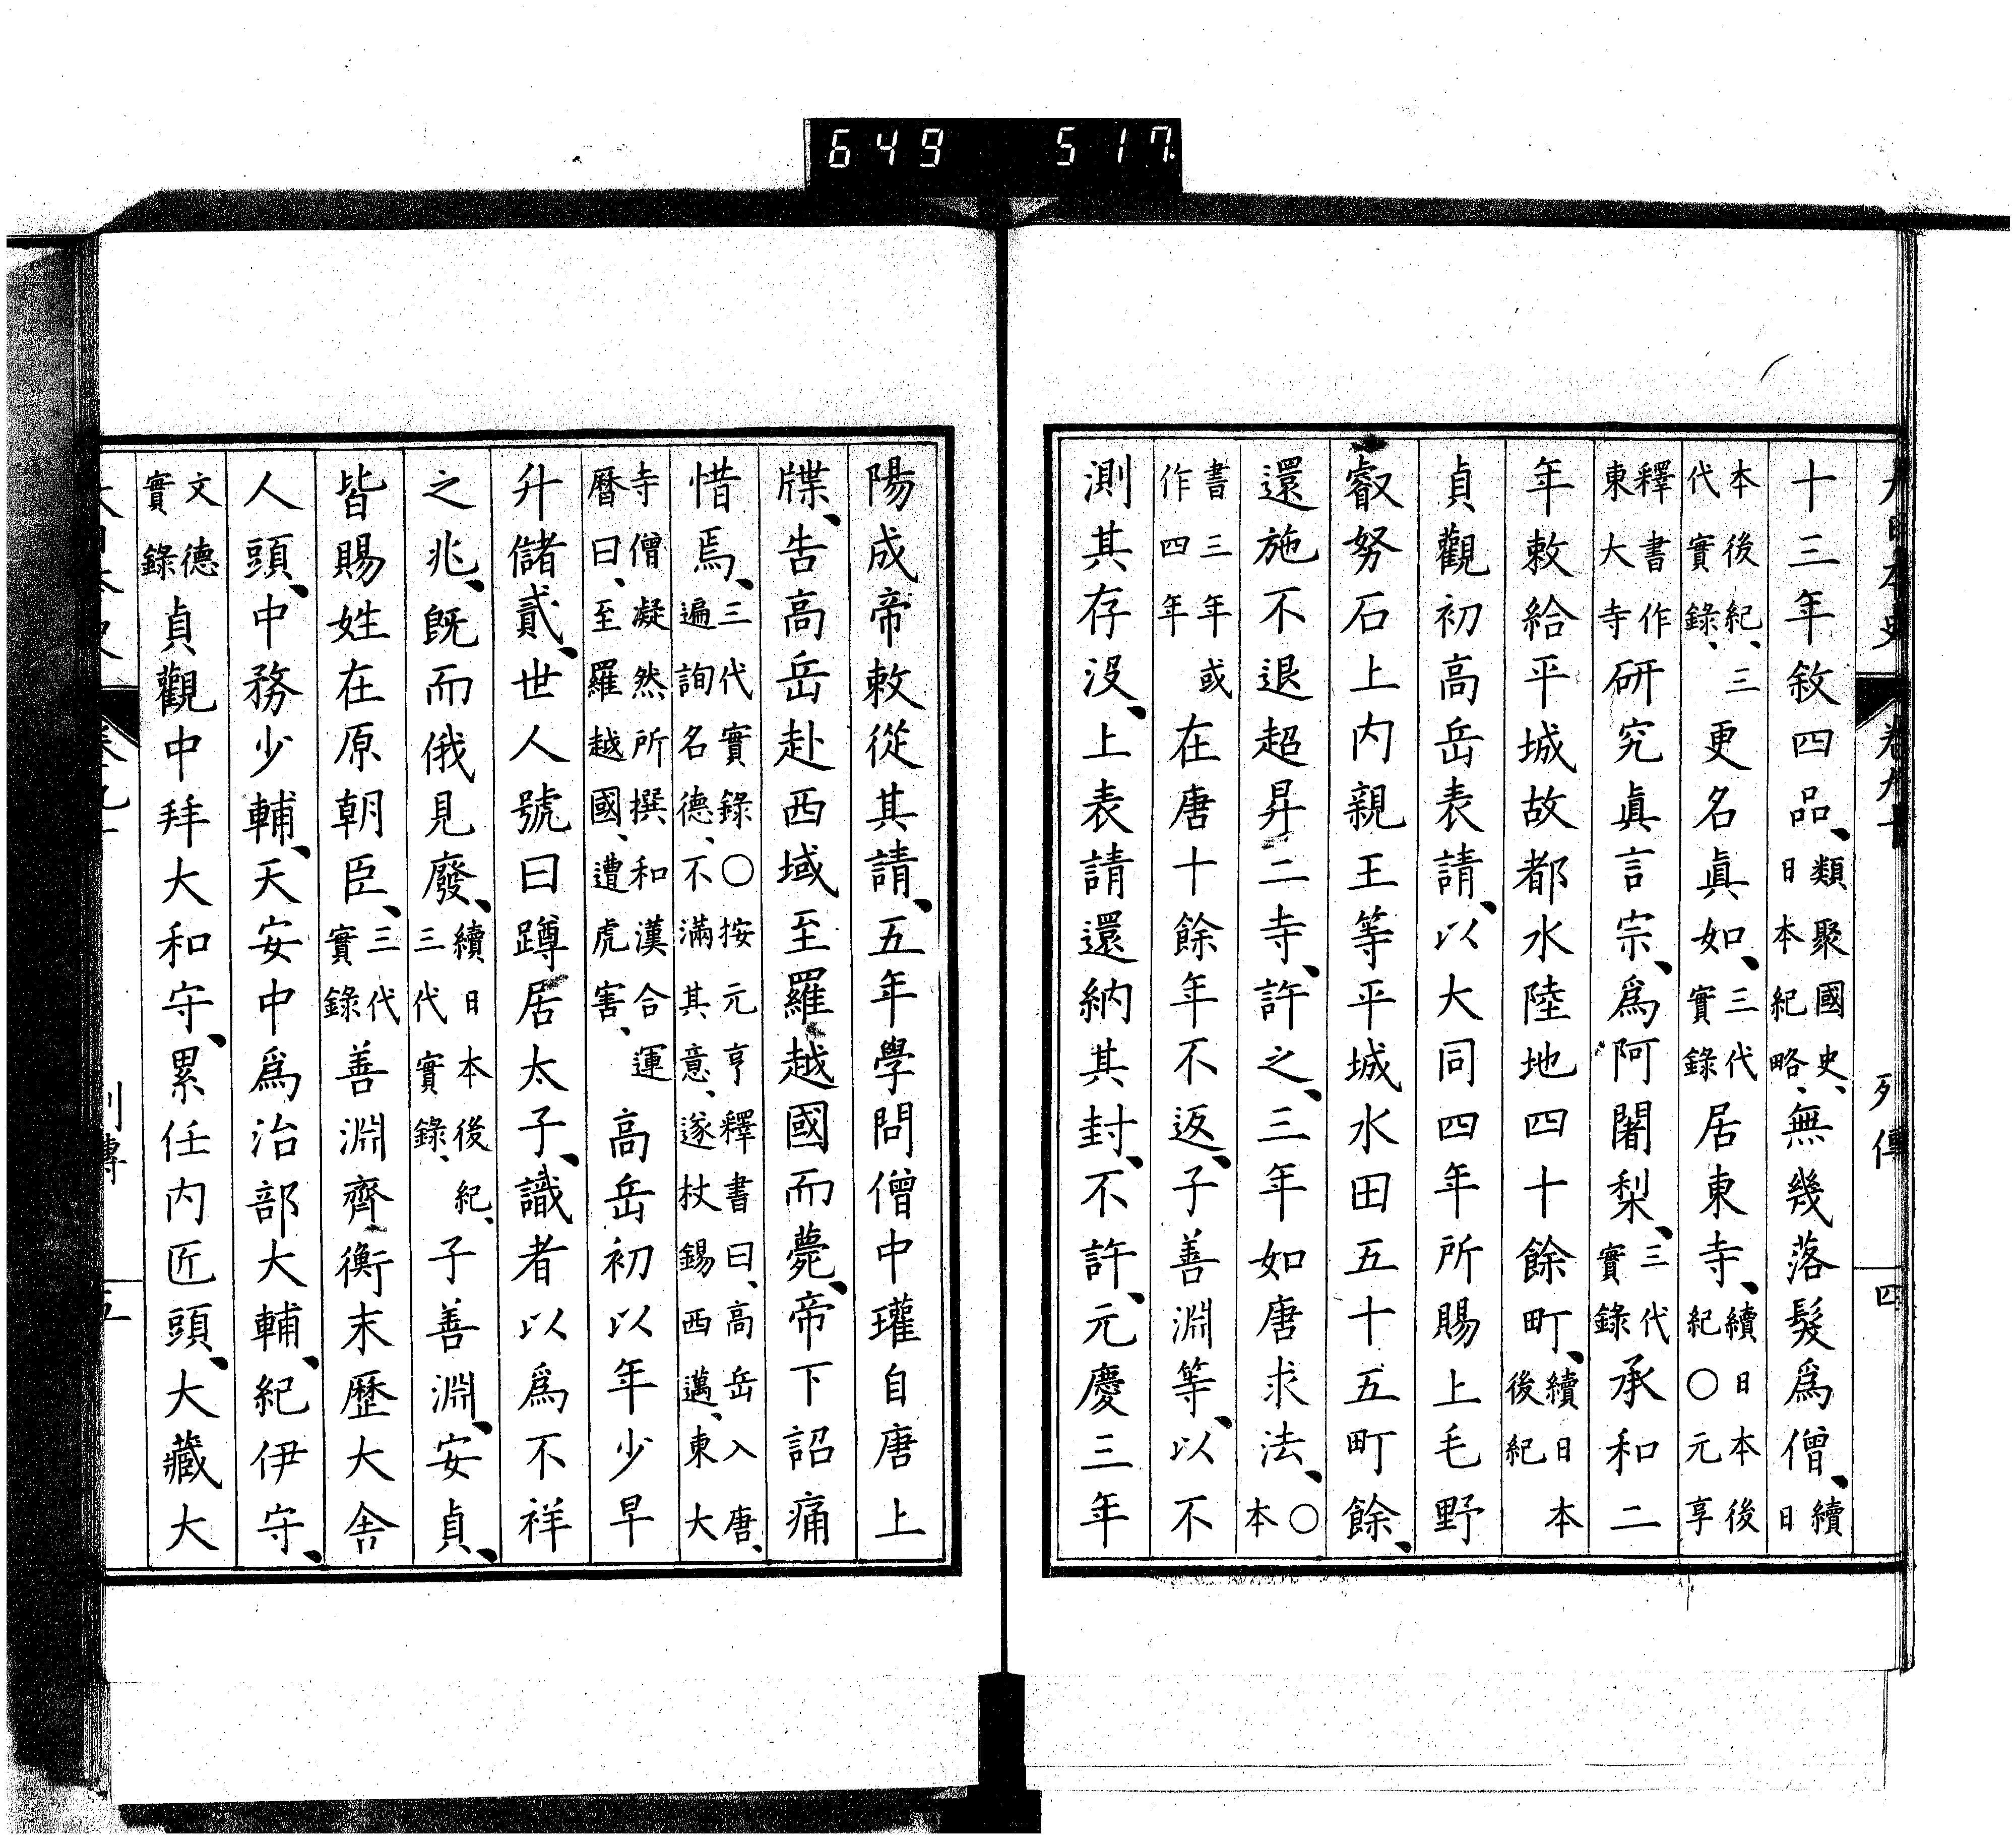 649 517.
大日本史 卷九十 列傳 四
十三年敘四品、類聚國史、日本紀略、無幾落髮爲僧、續日
本後紀、三代實錄、更名眞如、三代實錄居東寺、續日本後紀〇元亨
釋書作東大寺研究眞言宗、爲阿闍梨、三代實錄承和二
年敕給平城故都水陸地四十餘町、續日本後紀
貞觀初高岳表請、以大同四年所賜上毛野
叡努石上内親王等平城水田五十五町餘、
還施不退超昇二寺、許之、三年如唐求法、〇本
書三年或作四年在唐十餘年不返、子善淵等、以不
測其存沒、上表請還納其封、不許、元慶三年
陽成帝敕從其請、五年學問僧中瓘自唐上
牒、告高岳赴西域至羅越國而薨、帝下詔痛
惜焉、三代實錄〇按元亨釋書曰、高岳入唐、遍詢名德、不滿其意、遂杖錫西邁、東大
寺僧凝然所撰和漢合運曆曰、至羅越國、遭虎害、高岳初以年少早
升儲貳、世人號曰蹲居太子、識者以爲不祥
之兆、既而俄見廢、續日本後紀、三代實錄、子善淵、安貞、
皆賜姓在原朝臣、三代實錄善淵齊衡末歷大舍
人頭、中務少輔、天安中爲治部大輔、紀伊守、
文德實錄貞觀中拜大和守、累任内匠頭、大藏大